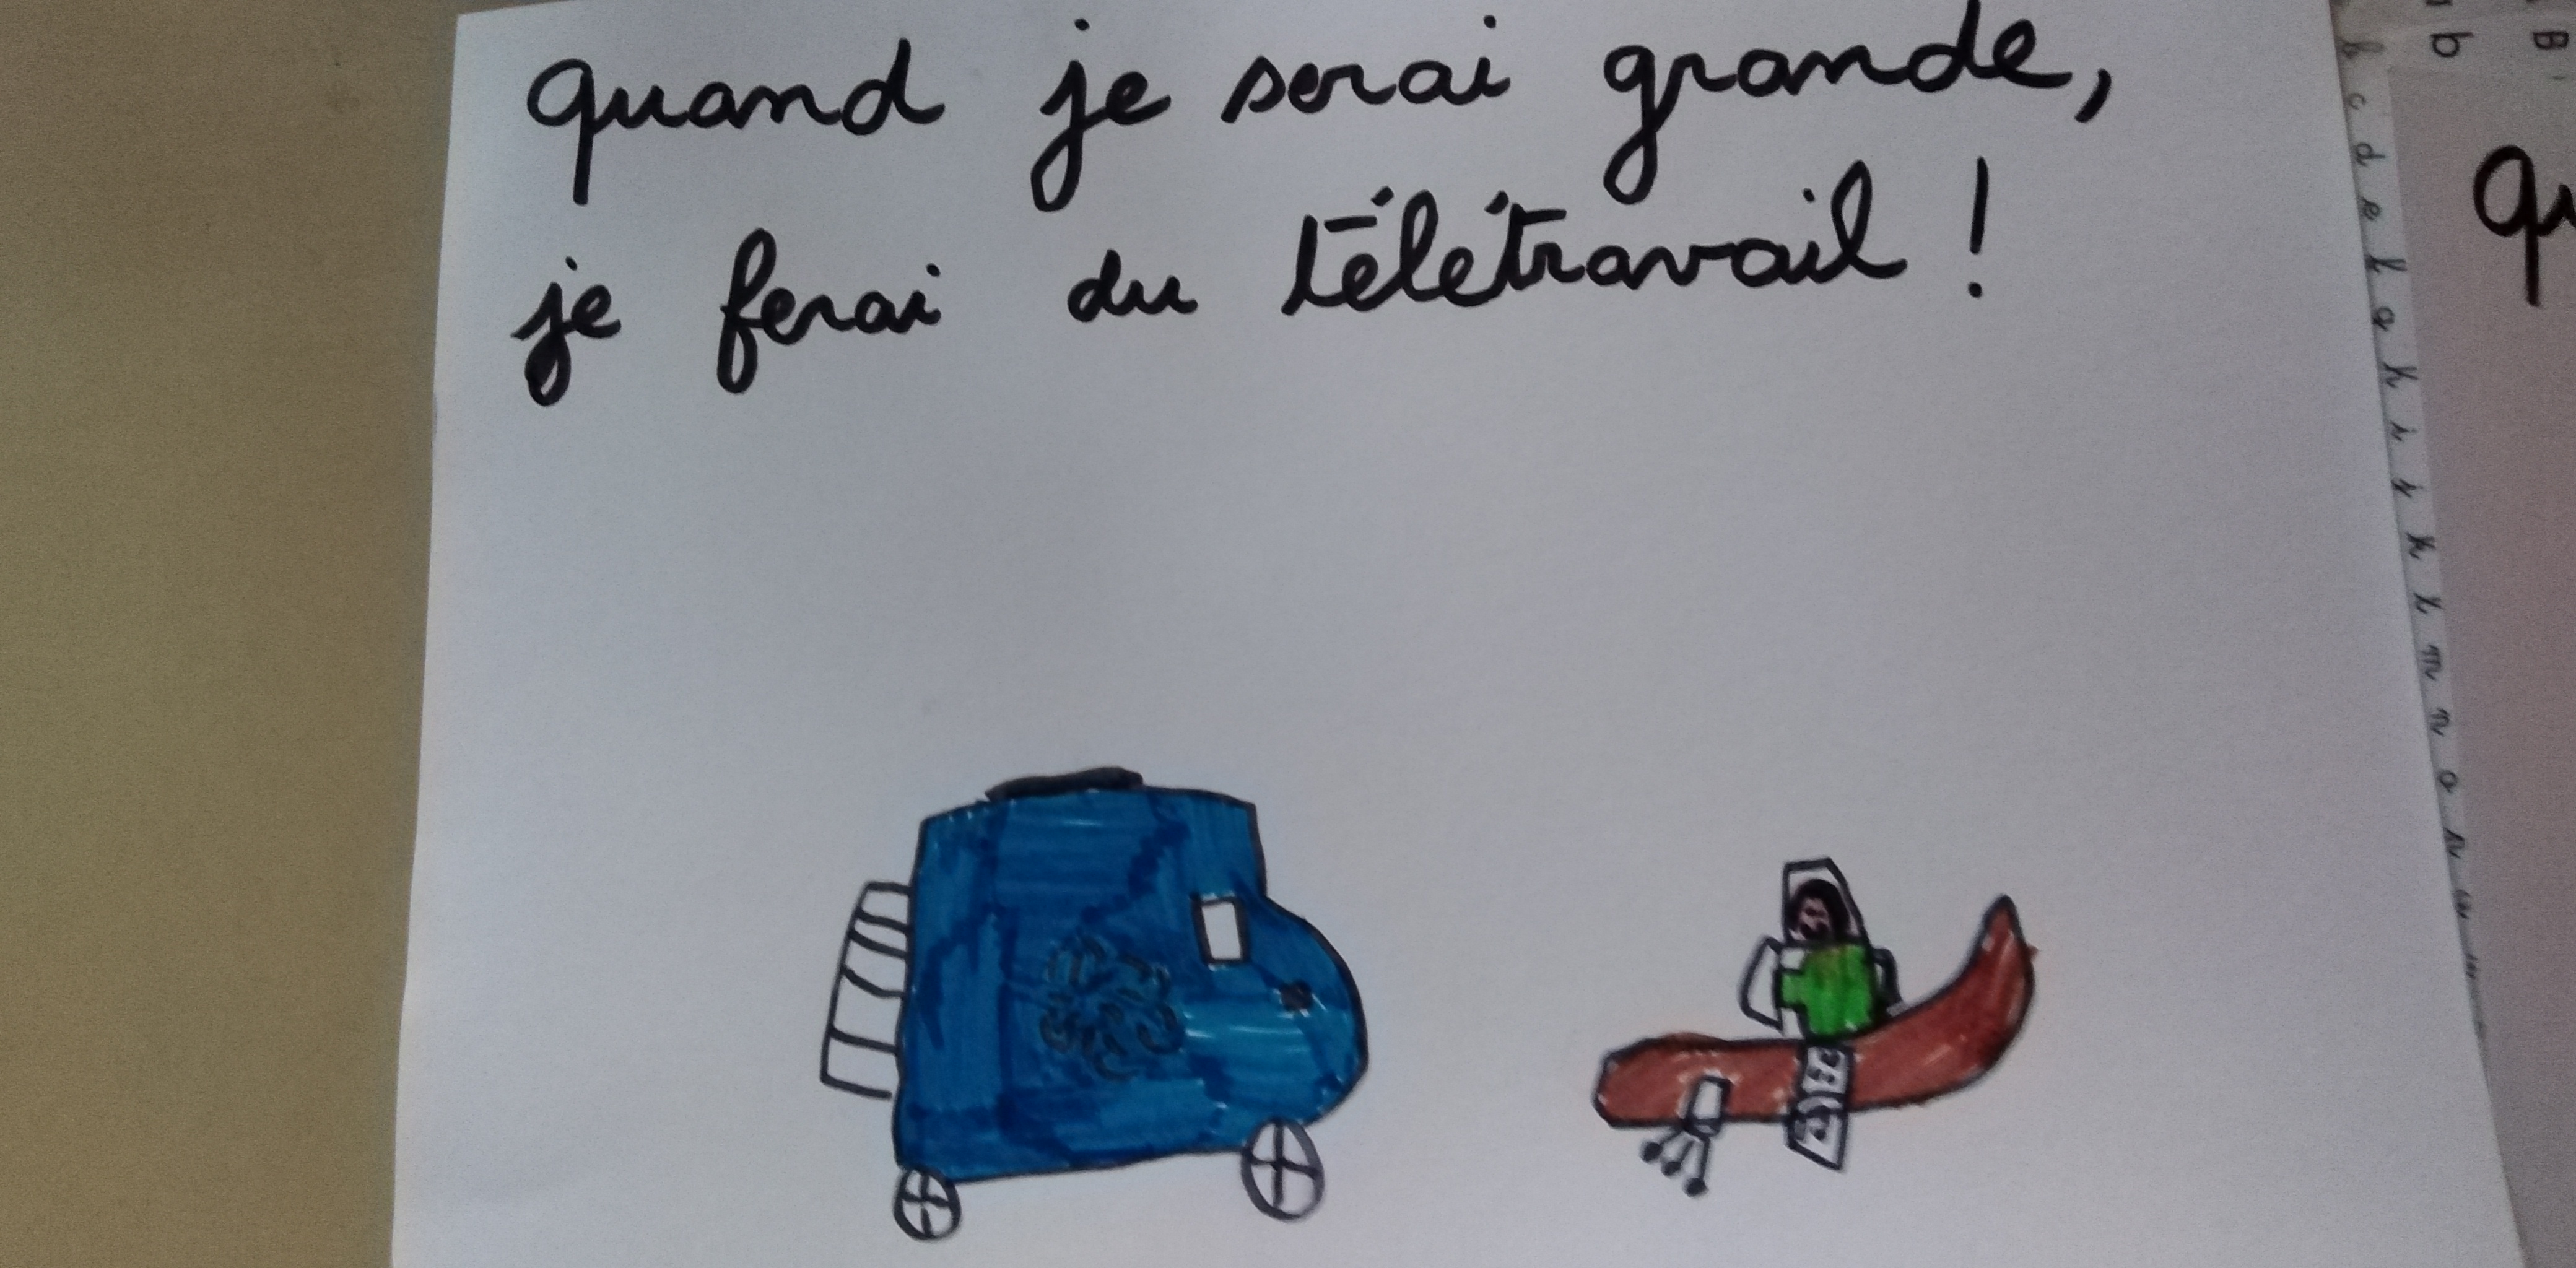 quand je serai grande,
je ferai du télétravail !
b B
qu
b c d e f g h i j k l m n o